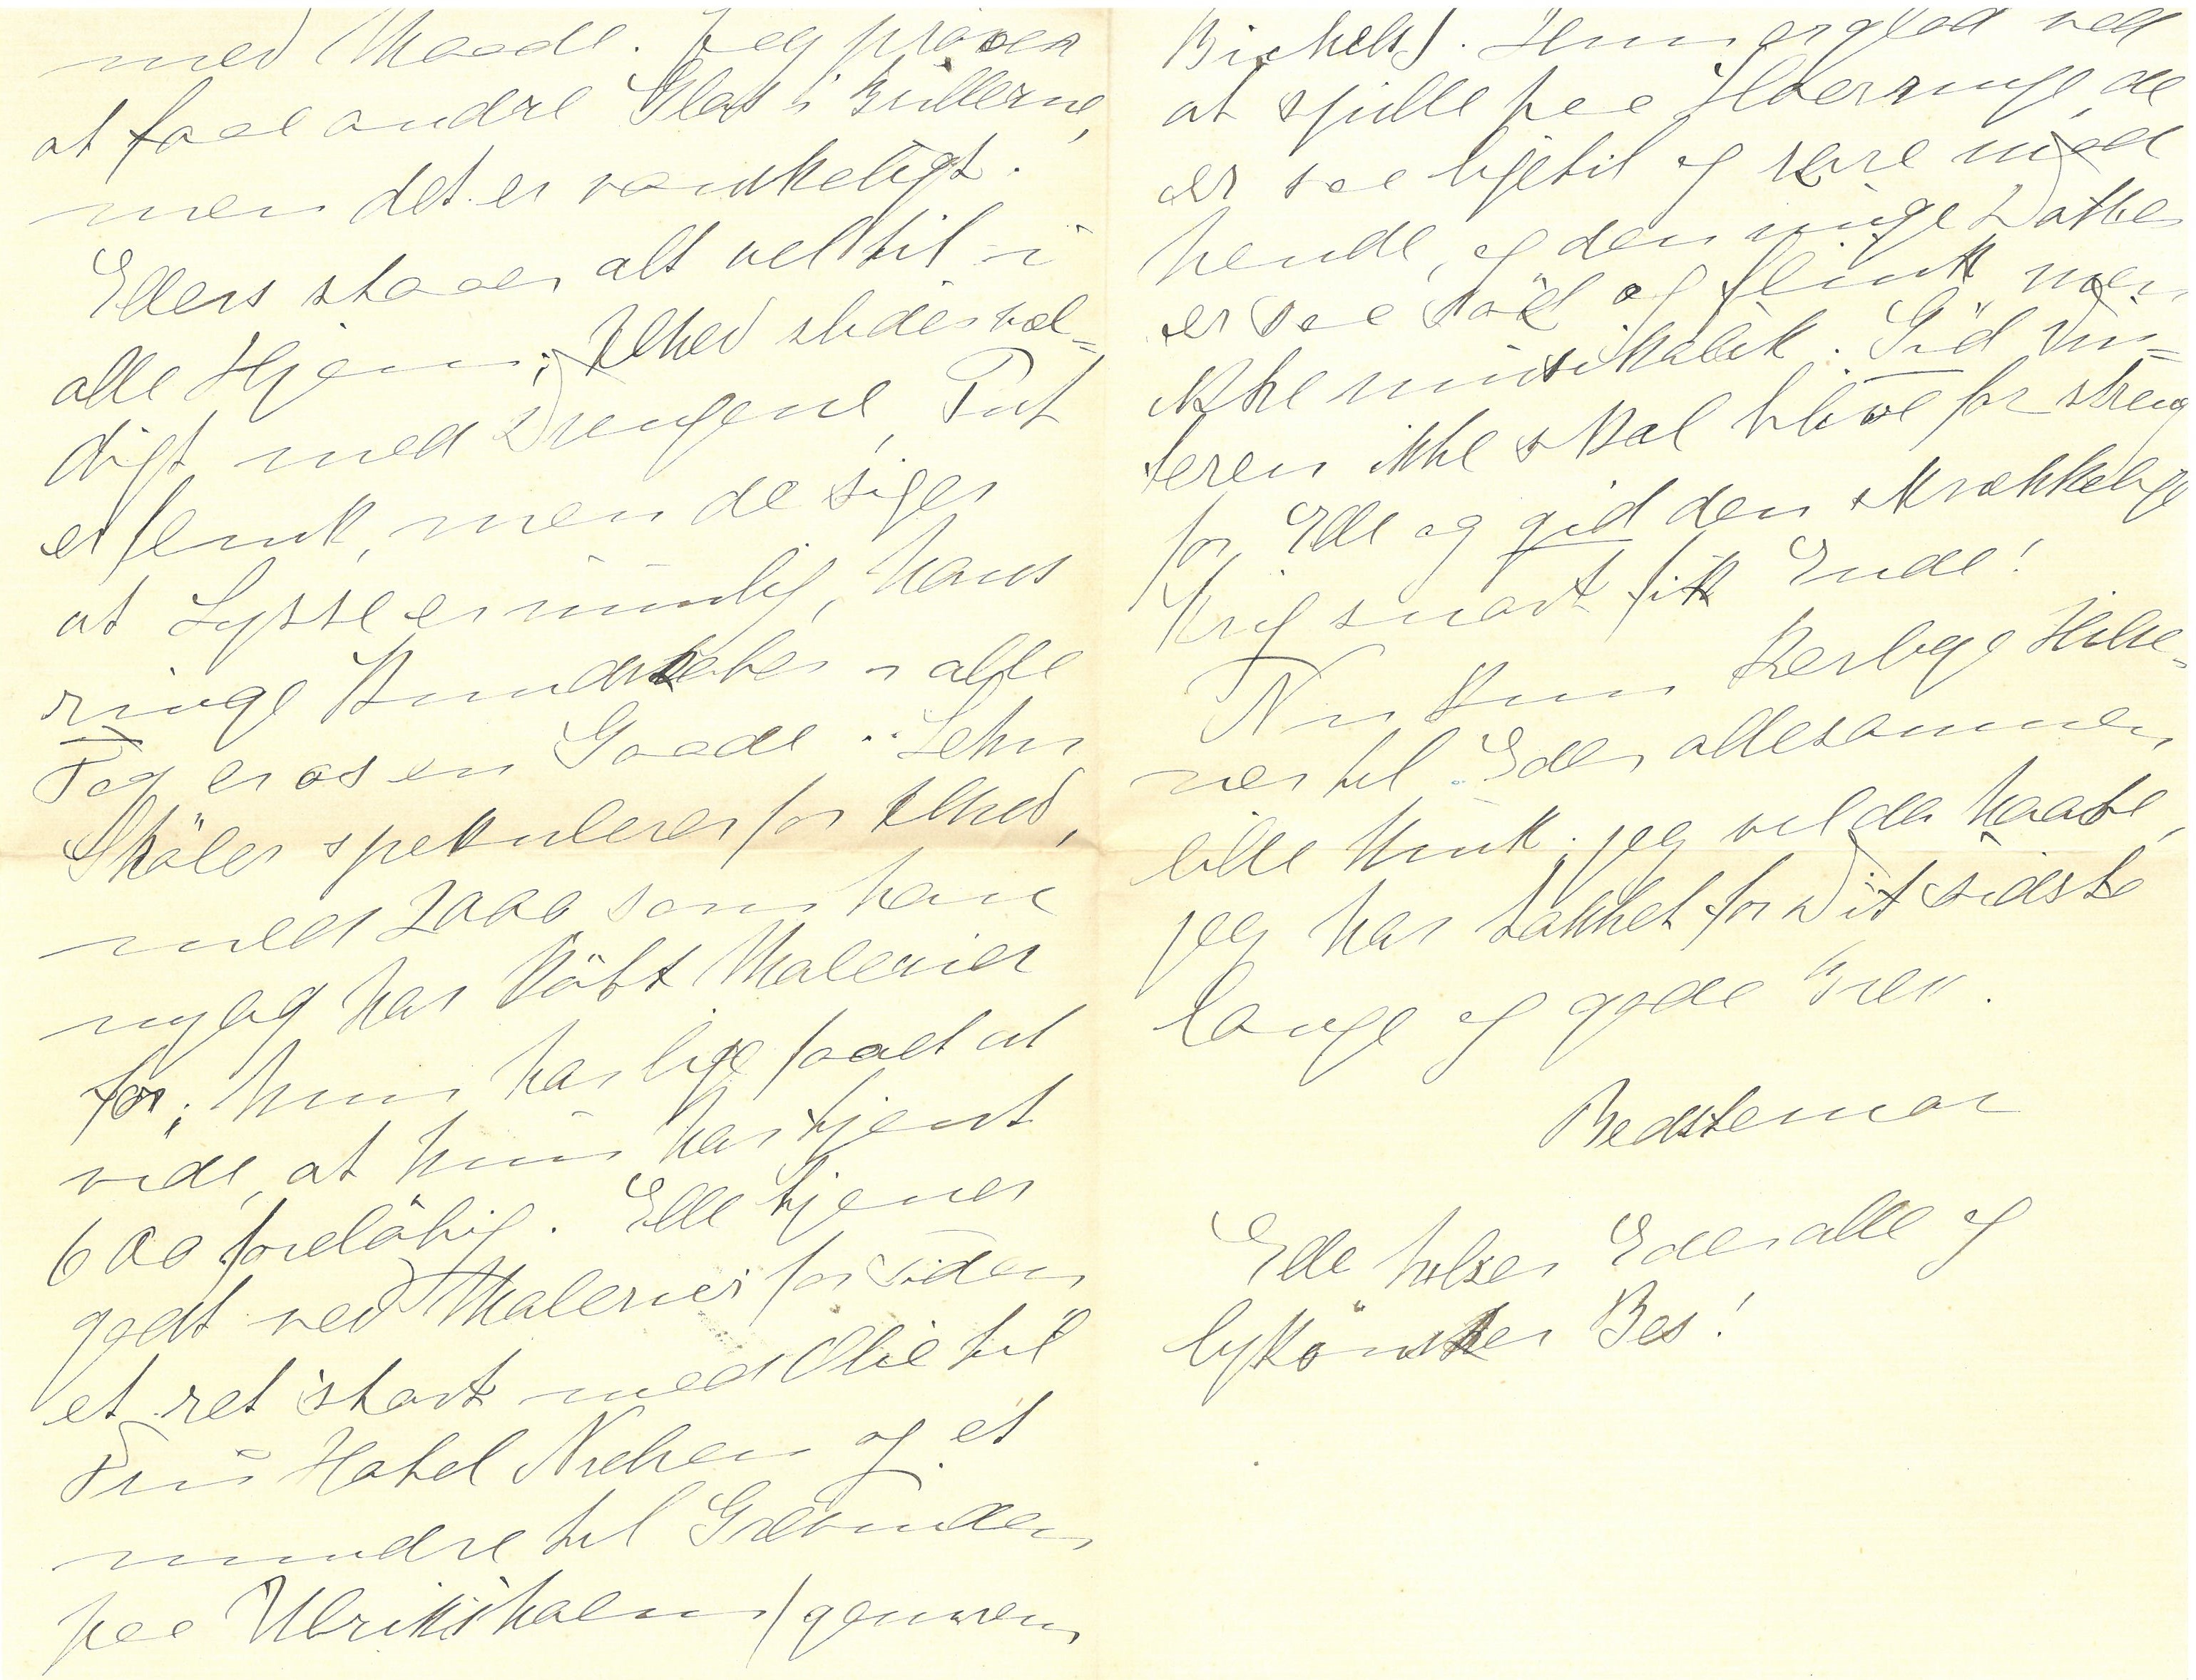 med Maade. Jeg prøver
at faae andre Glas i Brillerne,
men det er vanskeligt.
Ellers staaer alt vel til i
alle Hjem; Alhed slider væl=
digt med Drengene, Put
er flink, men de siger
at Lysse er umulig, hans
ringe Kundskaber i alle
Fag er os en Gaade. Lehn
Sköler spekulerer for Alhed,
med 2000 som han
nylig har köbt Malerier
for; hun har lige faaet at
vide, at hun har tjent
600 forelöbig. Elle tjener
godt ved Malerier for Tiden
et ret stort med Olie til
Fru Hotel Nielsen og et
mindre til Grevinden
paa Ulriksholm (gennem
Bichels). Hun er glad ved
at spille paa Hverringe, de
er saa ligetil og rare mod
hende, og den unge Datter
er saa söd og flink, men
ikke musikalsk. Gid Vin=
teren ikke skal blive for streng
for Elle og gid den skrækkelige
Krig snart fik Ende!
Nu kun kærlige Hilse-
ner til Eder allesammen
lille Muk; jeg vil da haabe,
jeg har takket for Dit sidste
lange og gode Brev.
Bedstemor
Elle hilser Eder alle og
lykönsker Bes!